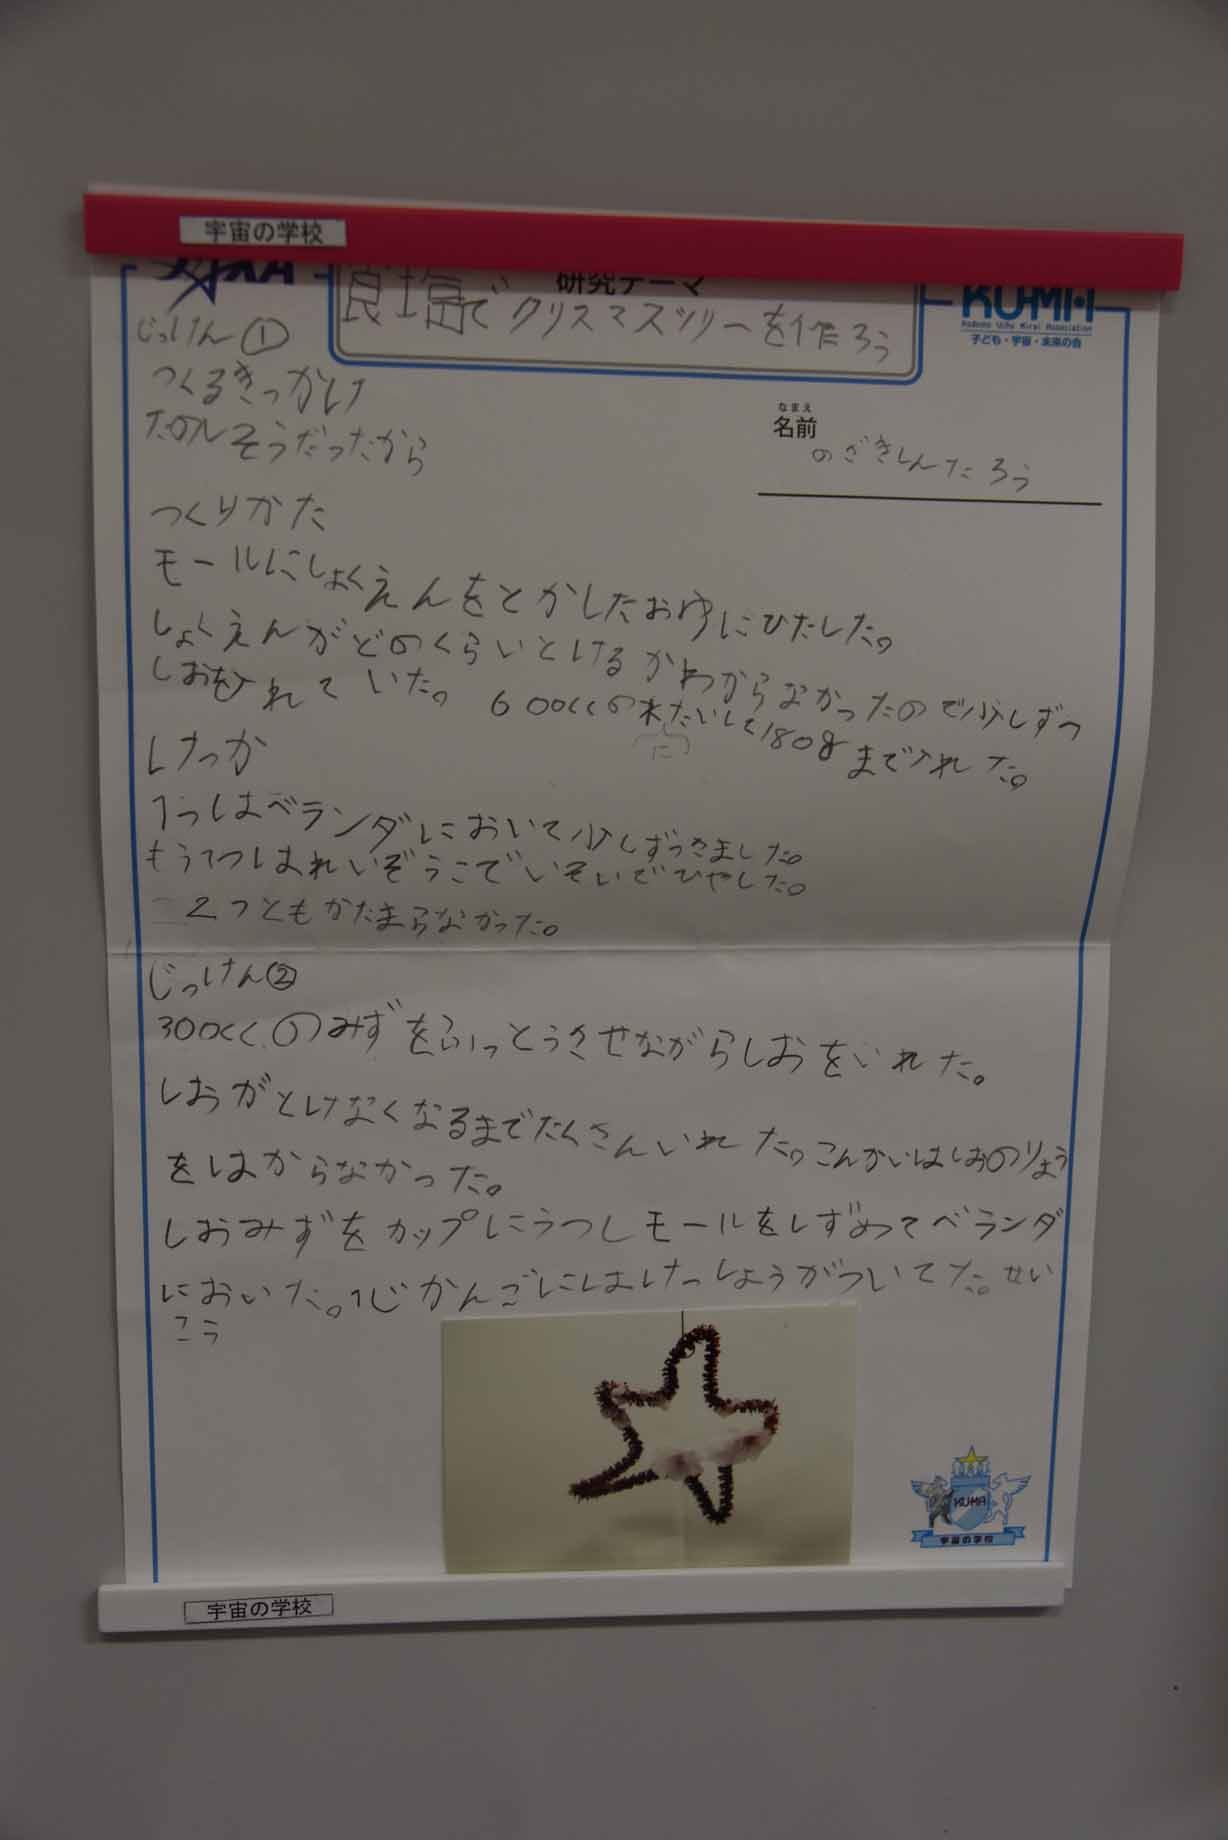 宇宙の学校
JAXA
研究テーマ
KUMA
Kodomo Uchu Mirai Association
子ども・宇宙・未来の会
食塩でクリスマスツリーを作たろう
じっけん①
つくるきっかけ
たのしそうだったから
なまえ
名前
のざきしんたろう
つくりかた
モールにしょくえんをとかしたおゆにひたした。
しょくえんがどのくらいとけるかわからなかったので少しずつ
しおを入れていた。600ccの水たいして180gまで入れた。
に
けっか
1つはベランダにおいて少しずつさました。
もう1つはれいぞうこでいそいでひやした。
2つともかたまらなかった。
じっけん②
300ccのみずをふっとうさせながらしおをいれた。
しおがとけなくなるまでたくさんいれた。こんかいはしおのりょう
をはからなかった。
しおみずをカップにうつしモールをしずめてベランダ
においた。1じかんごにはけっしょうがついてた。せい
こう
KUMA
宇宙の学校
宇宙の学校